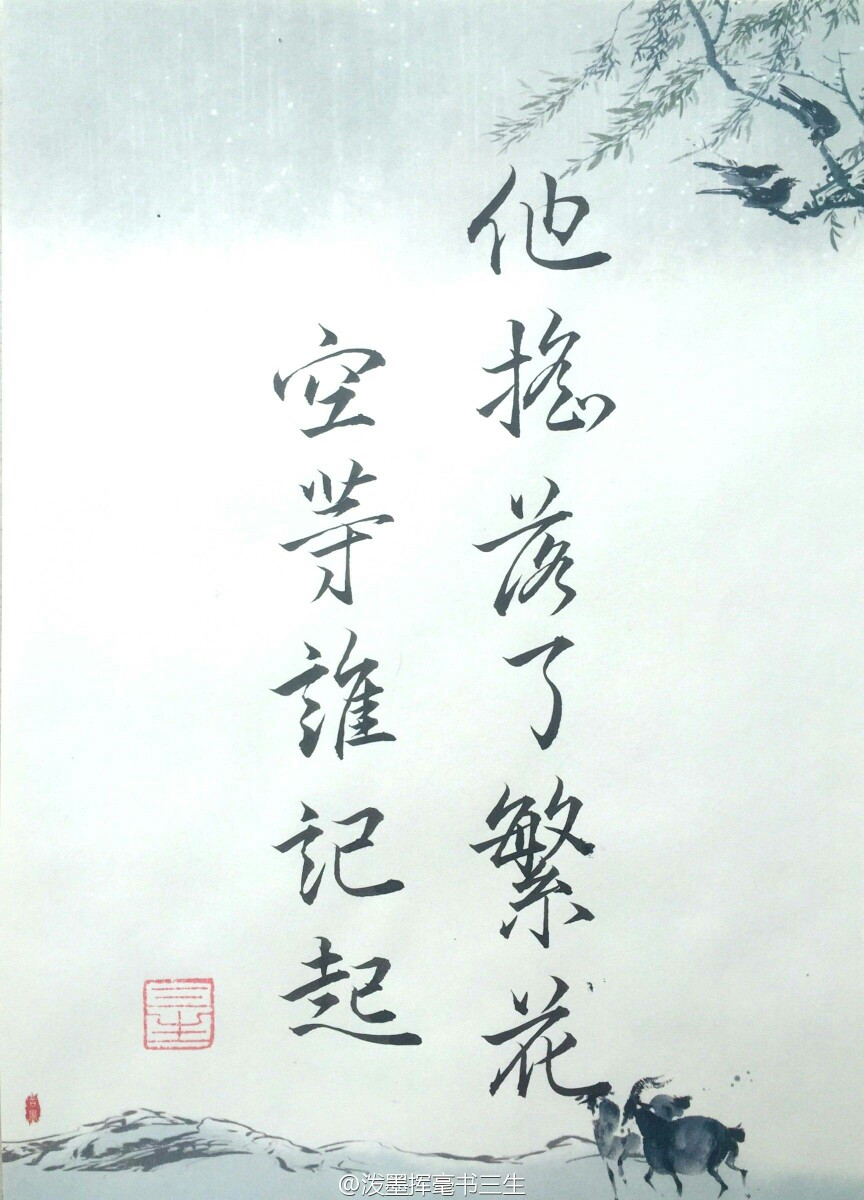 他搖落了繁花
空等誰記起
三生
@泼墨挥毫书三生